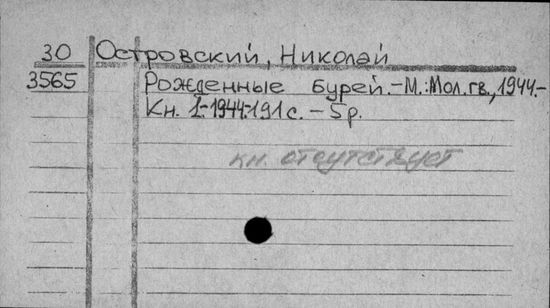 30 Островский, Николай
3565 Рожденные бурей.-М.:Мол.гв.,1944.-
Кн. 1.-1944.-191с.-5р.
кн. отсутствует